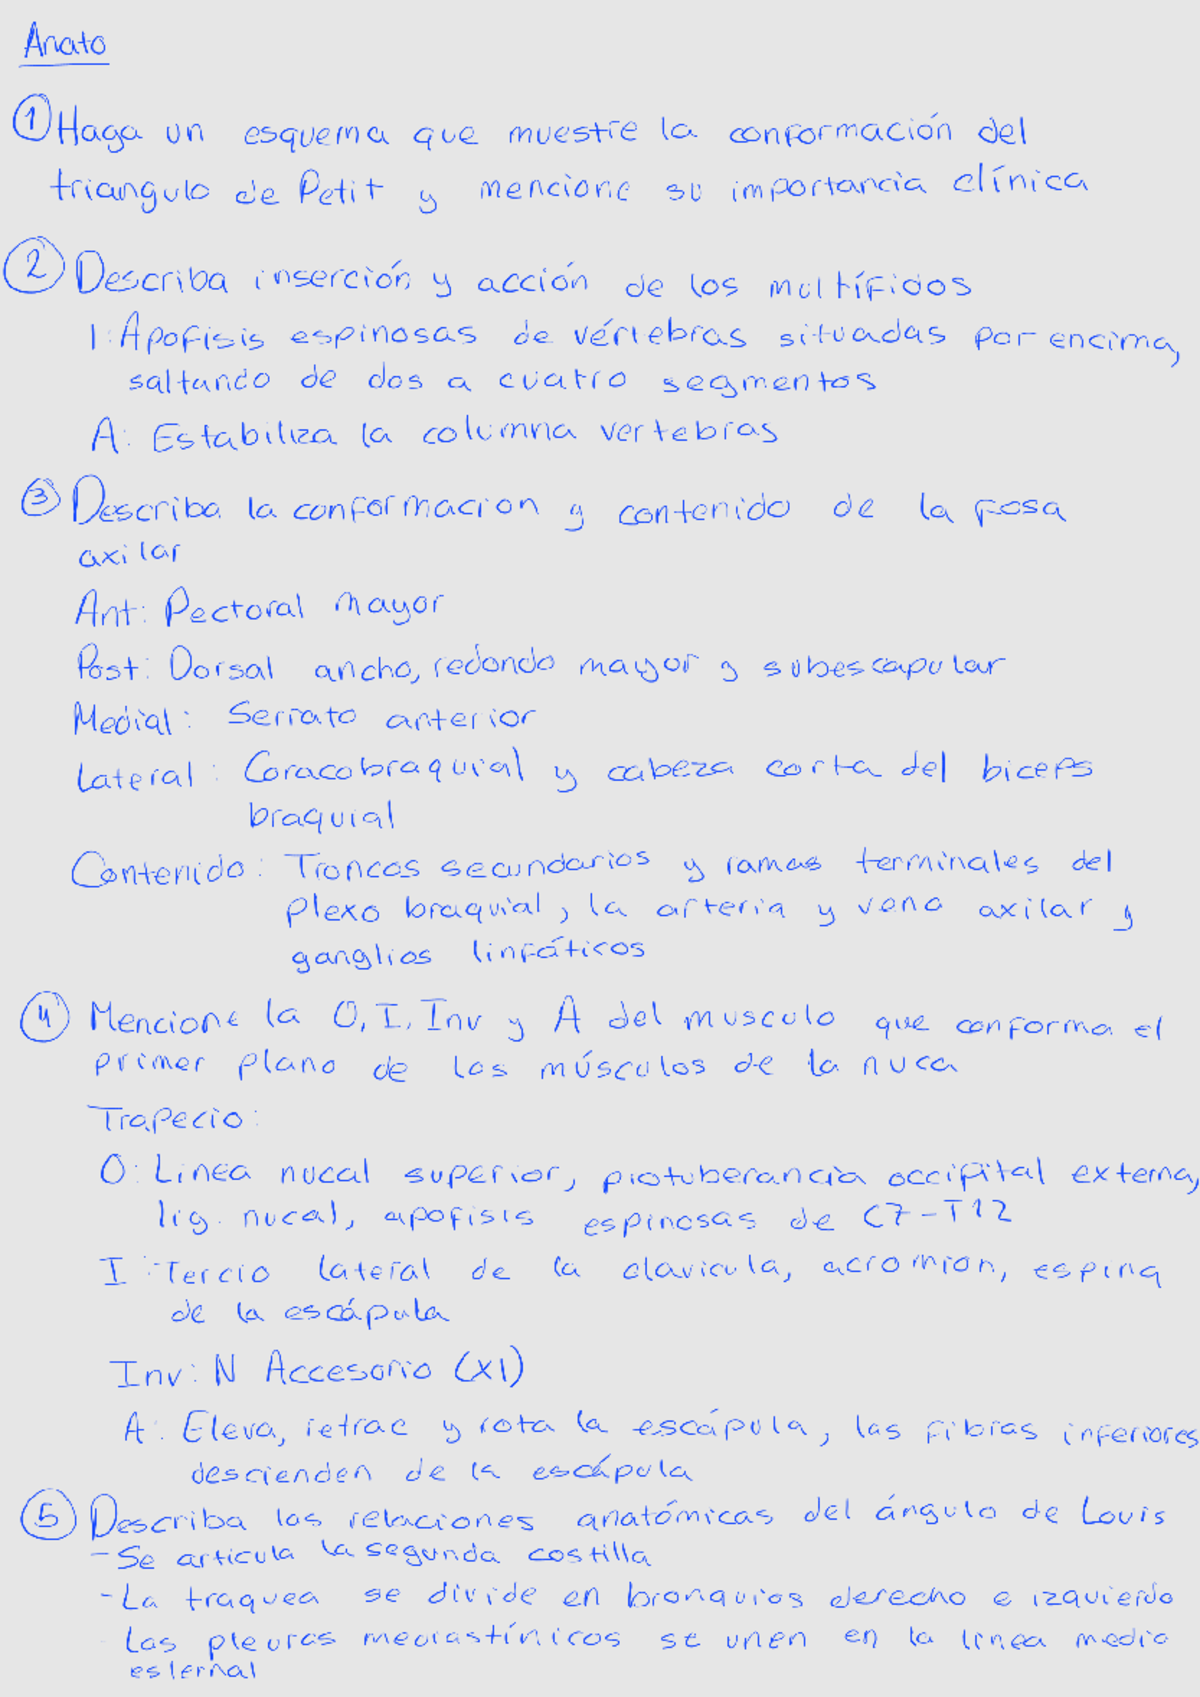 Anato
① Haga un esquema que muestre la conformación del
triangulo de Petit y mencione su importancia clínica
② Describa inserción y acción de los multífidos
I: Apofisis espinosas de vértebras situadas por encima,
saltando de dos a cuatro segmentos
A: Estabiliza la columna vertebras
③ Describa la conformacion y contenido de la fosa
axilar
Ant: Pectoral mayor
Post: Dorsal ancho, redondo mayor y subescapular
Medial: Serrato anterior
Lateral: Coracobraquial y cabeza corta del biceps
braquial
Contenido: Troncos secundarios y ramas terminales del
plexo braquial, la arteria y vena axilar y
ganglios linfáticos
④ Mencione la O, I, Inv y A del musculo que conforma el
primer plano de los músculos de la nuca
Trapecio:
O: Linea nucal superior, protuberancia occipital externa,
lig. nucal, apofisis espinosas de C7-T12
I: Tercio lateral de la clavicula, acromion, espina
de la escápula
Inv: N Accesorio (XI)
A: Eleva, retrae y rota la escápula, las fibras inferiores
descienden de la escápula
⑤ Describa las relaciones anatómicas del ángulo de Louis
- Se articula la segunda costilla
- La traquea se divide en bronquios derecho e izquierdo
- Las pleuras mediastínicas se unen en la linea media
esternal